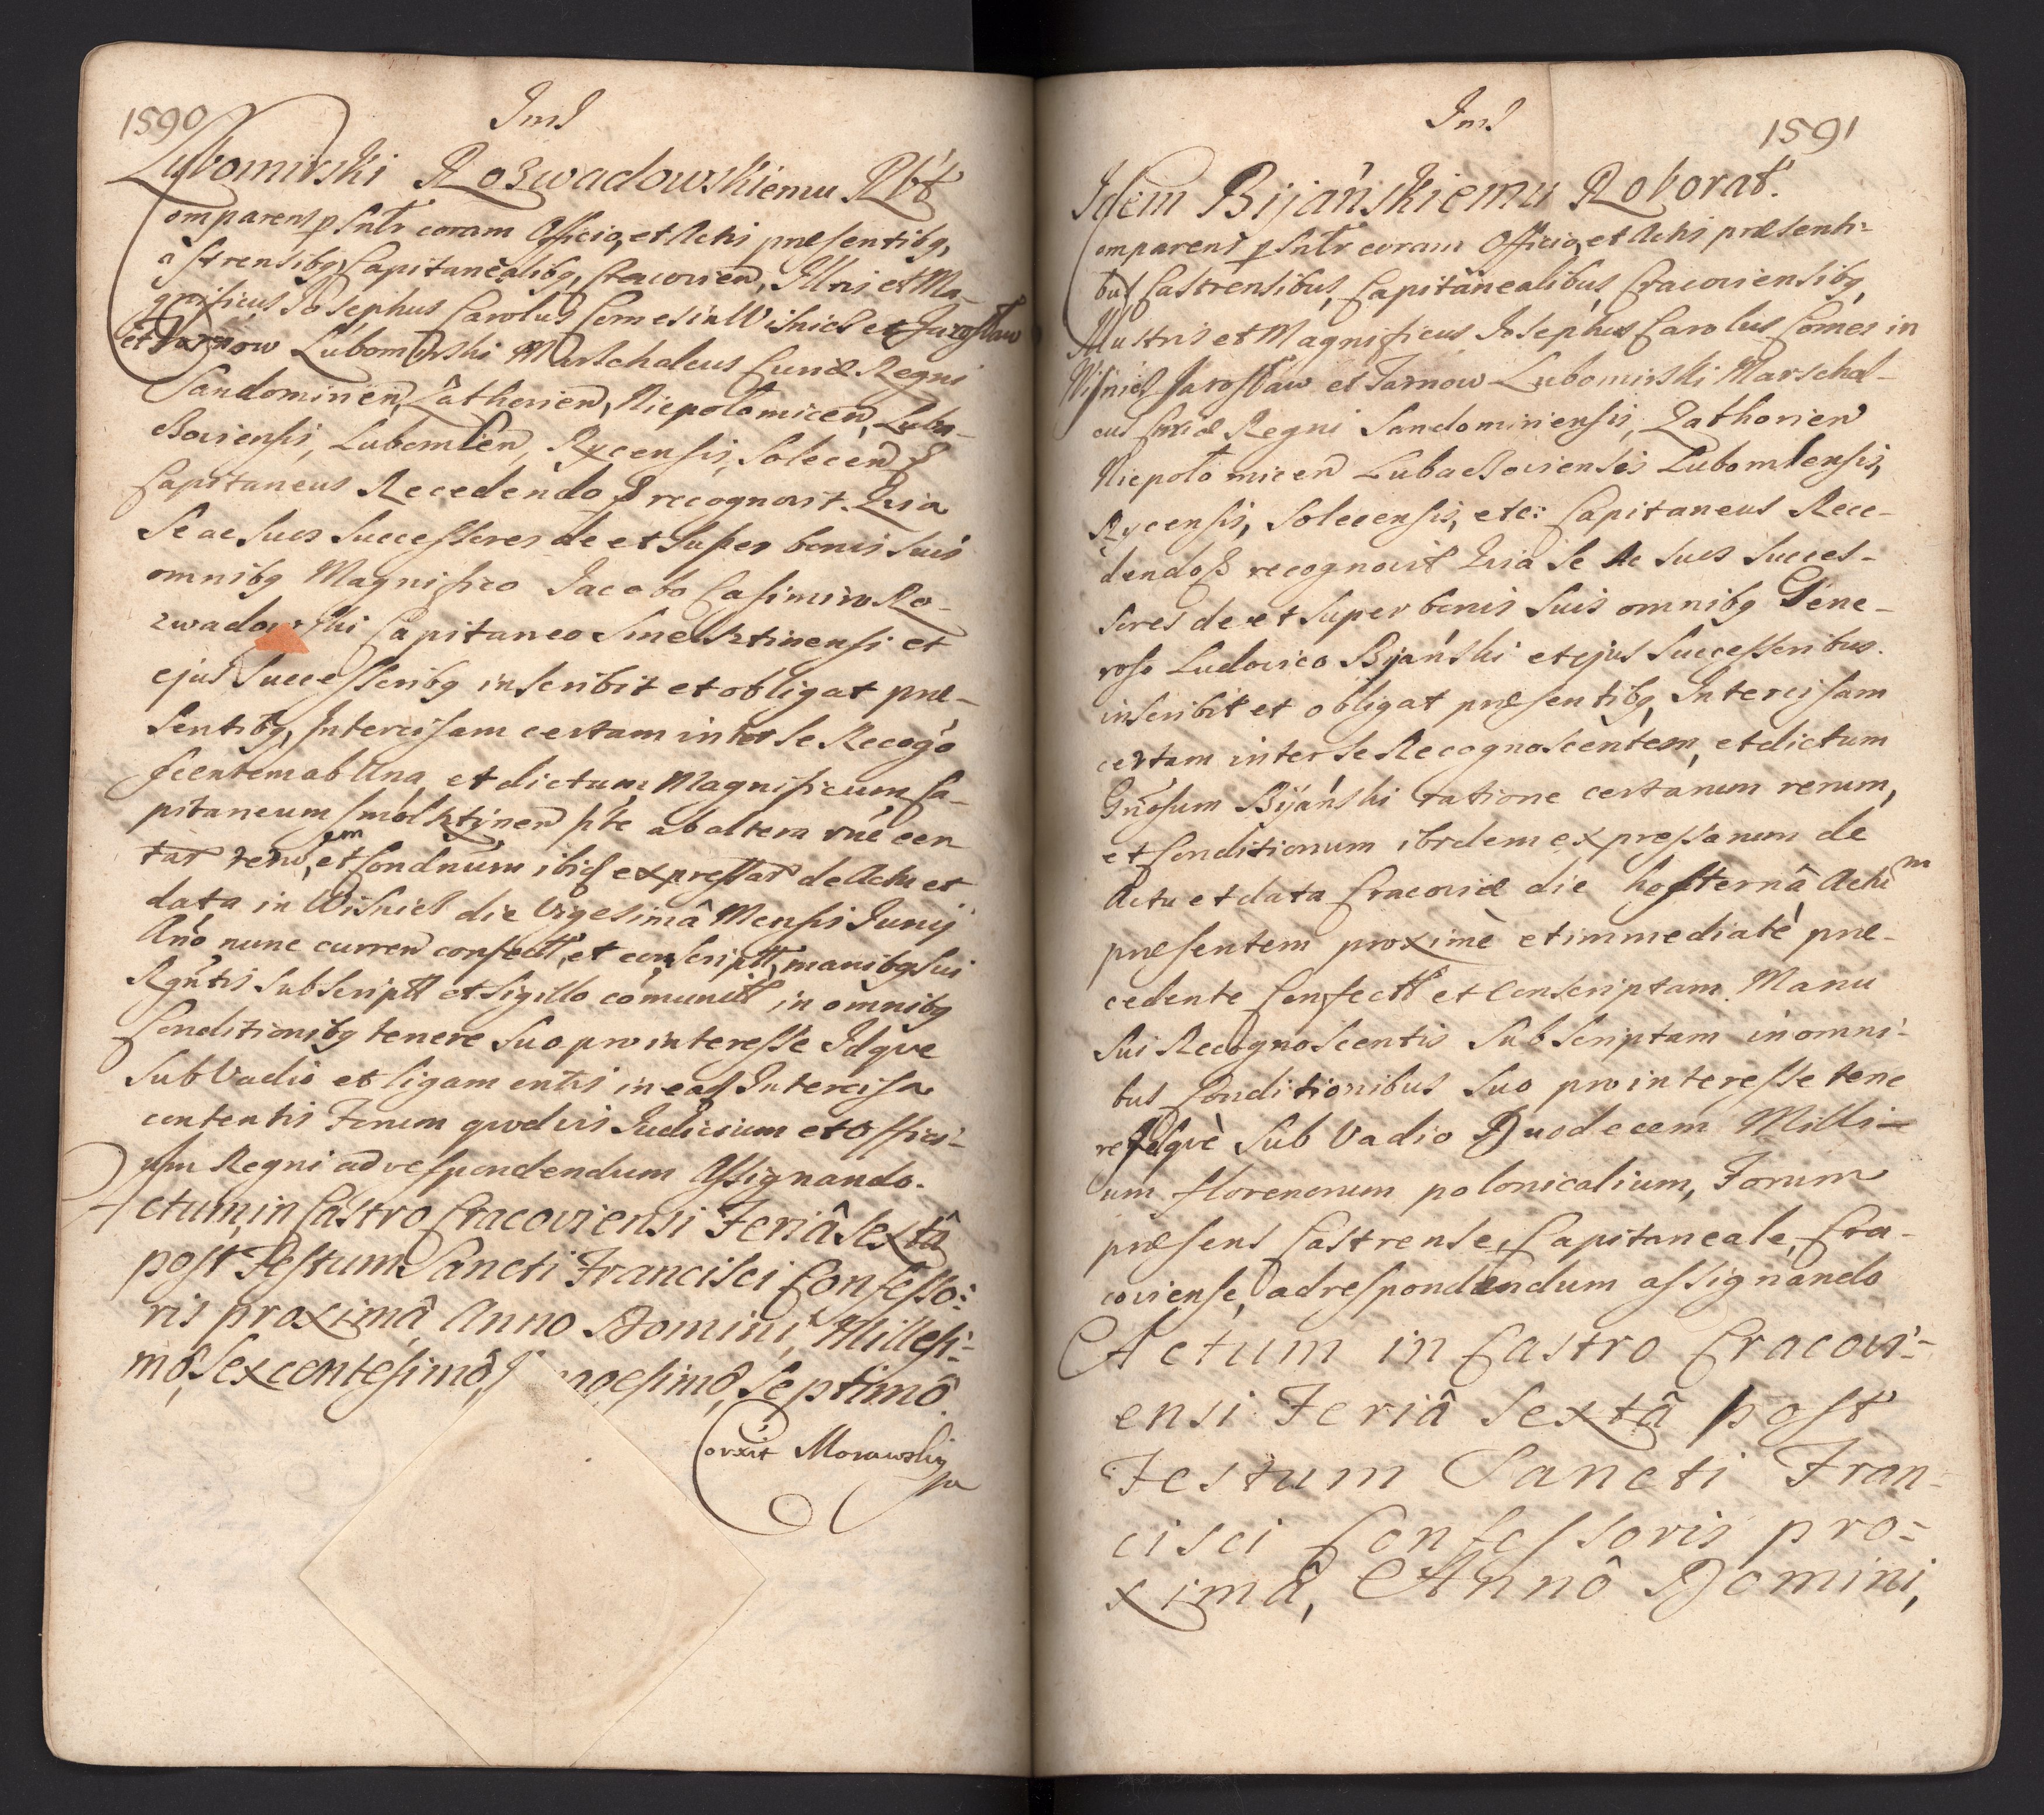 1590
Ims
Lubomirski Rozwadowskiemu Rbt
Comparens psnltr coram Officio, et Actis præsentibq,
Castrensibq, Capitanealibq, Cracovien, Illris et Ma-
gnificus Josephus Carolus Comes in Wisnicz et Jarosław
et Tarnow Lubomirski Marschalcus Curiæ Regni
Sandomirien, Zathorien, Niepołomicen, Luba-
czoviensis, Lubomlen, Rycensis, Solecen
Capitaneus Recedendo recognovit Quia
Se ac suos Successores de et super bonis suis
omnibq Magnifico Jacobo Casimiro Ro-
zwadowski Capitaneo Smelsztinensi et
ejus Successoribq inscribit et obligat præ-
sentibq, Intercisam certam inter se Recogo
scentem ab una, et dictum Magnificum Ca-
pitaneum Smolsztynen pte ab altera rne cer
tar rerum, et Condnum ibid expressar de Actu et
data in Wisnicz die Vigesimâ Mensis Junij
Ano nunc curren confectt, et conscriptt, manibq sui
Rgntis subscriptt et sigillo comunitt in omnibq
Conditionibq tenere suo pro interesse Idqve
sub Vadio et ligamentis in ead Intercisa
contentis Forum qvodvis Judicium et Offici-
um Regni ad respondendum Assignando.
Actum in Castro Cracoviensi Feriâ Sextâ
post Festum Sancti Francisci Confesso:
ris proximâ Anno Domini, Millesi-
mô, Sexcentesimô, Septimô.
Corxit Morawsky
1591
Ims
Idem Bijáńskiemu Roborat.
Comparens psnltr coram Officio, et Actis præsenti-
bus Castrensibus, Capitanealibus, Cracoviensibq,
Illustris et Magnificus Josephus Carolus Comes in
Wisnicz Jarosław et Tarnow Lubomirski Marschal-
cus Curiæ Regni Sandomiriensis, Zathorien
Niepołomicen Lubaczoviensis Lubomlensis,
Rycensis, Solecensis, etc: Capitaneus Rece-
dendo recognovit Quia se Ac suos Succes-
sores de et super bonis suis omnibq Gene-
roso Ludovico Bijáński et ejus Successoribus.
inscribit et obligat præsentibq, Intercisam
certam inter se Recognoscentem, et dictum
Gnosum Bijáński ratione certarum rerum,
et Conditionum ibidem expressarum de
Actu et data Cracoviæ die hesternâ, Actum
præsentem proximè et immediatè præ-
cedente Confectt et Conscriptam. Manu
sui Recognoscentis Subscriptam in omni-
bus Conditionibus suo pro interesse tene
re Idqvè Sub Vadio Duodecem Milli-
um florenorum polonicalium, Forum
præsens Castrense, Capitaneale, Cra-
coviense, ad respondendum assignando
Actum in Castro Cracovi-
ensi Feriâ Sextâ post
Festum Sancti Fran-
cisci Confessoris pro-
ximâ, Annô Domini,